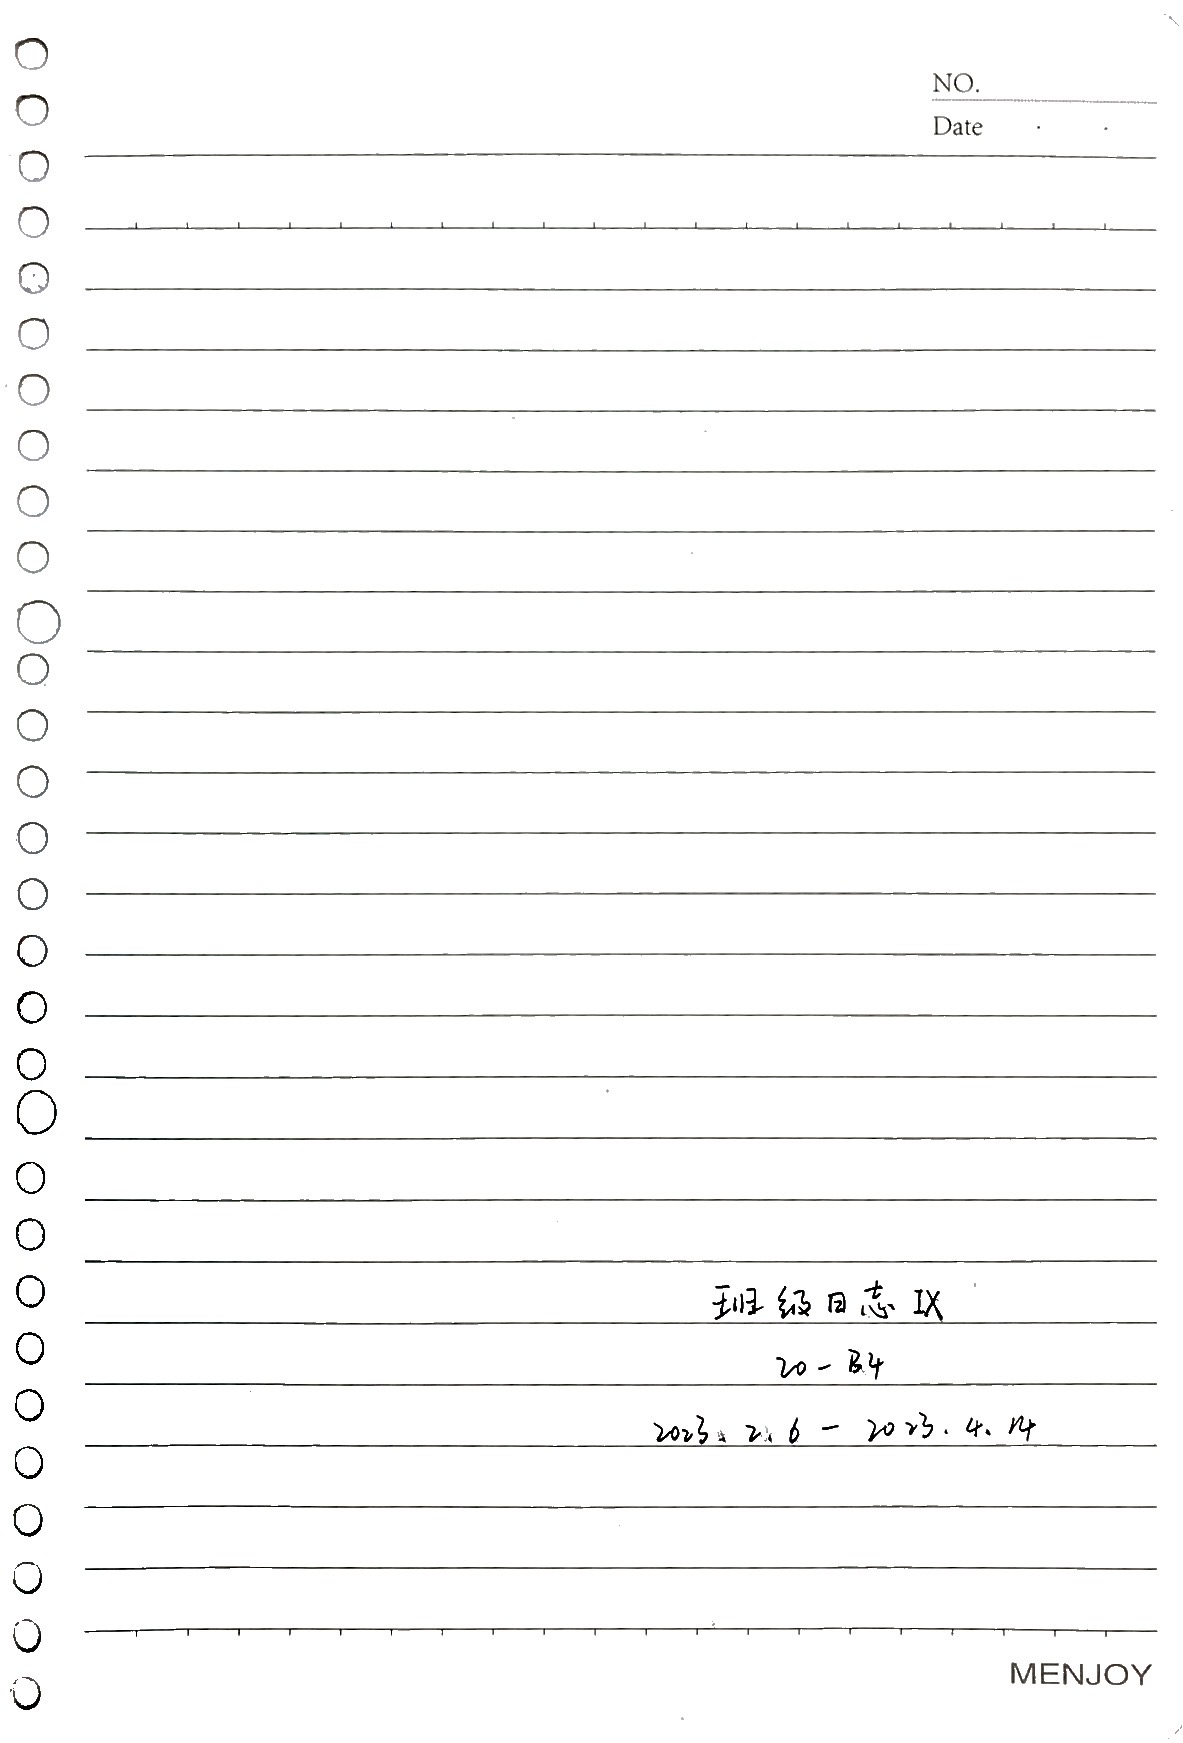 NO.
Date . .
班级日志 IX
20-B4
2023.2.6-2023.4.14
MENJOY